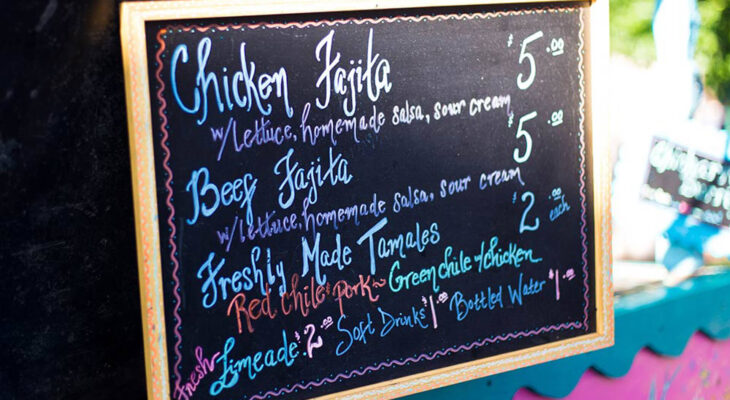 Chicken Fajita $5.00
w/lettuce, homemade salsa, sour cream
Beef Fajita $5.00
w/lettuce, homemade salsa, sour cream
Freshly Made Tamales $2.00 each
Red chile & Pork ~ Green chile w/chicken
Fresh Limeade $2.00 Soft Drinks $1.00 Bottled Water $1.00